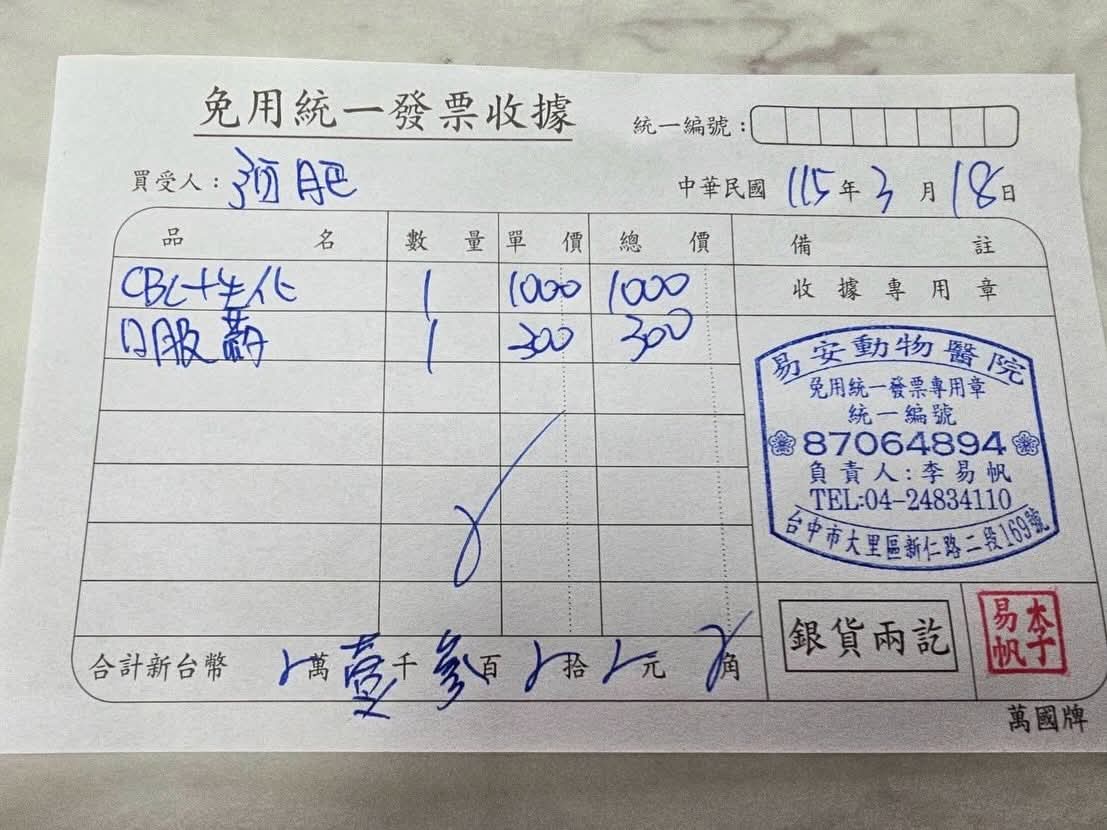 免用統一發票收據
統一編號：
買受人：河肥
中華民國 115年3月18日
品名 數量 單價 總價 備註
CBC+生化 1 1000 1000
收據專用章
口服藥 1 300 300
易安動物醫院
免用統一發票專用章
統一編號
87064894
負責人：李易帆
TEL:04-24834110
台中市大里區新仁路二段169號
合計新台幣 萬壹千參百 拾 元 角
銀貨兩訖
李易帆
萬國牌